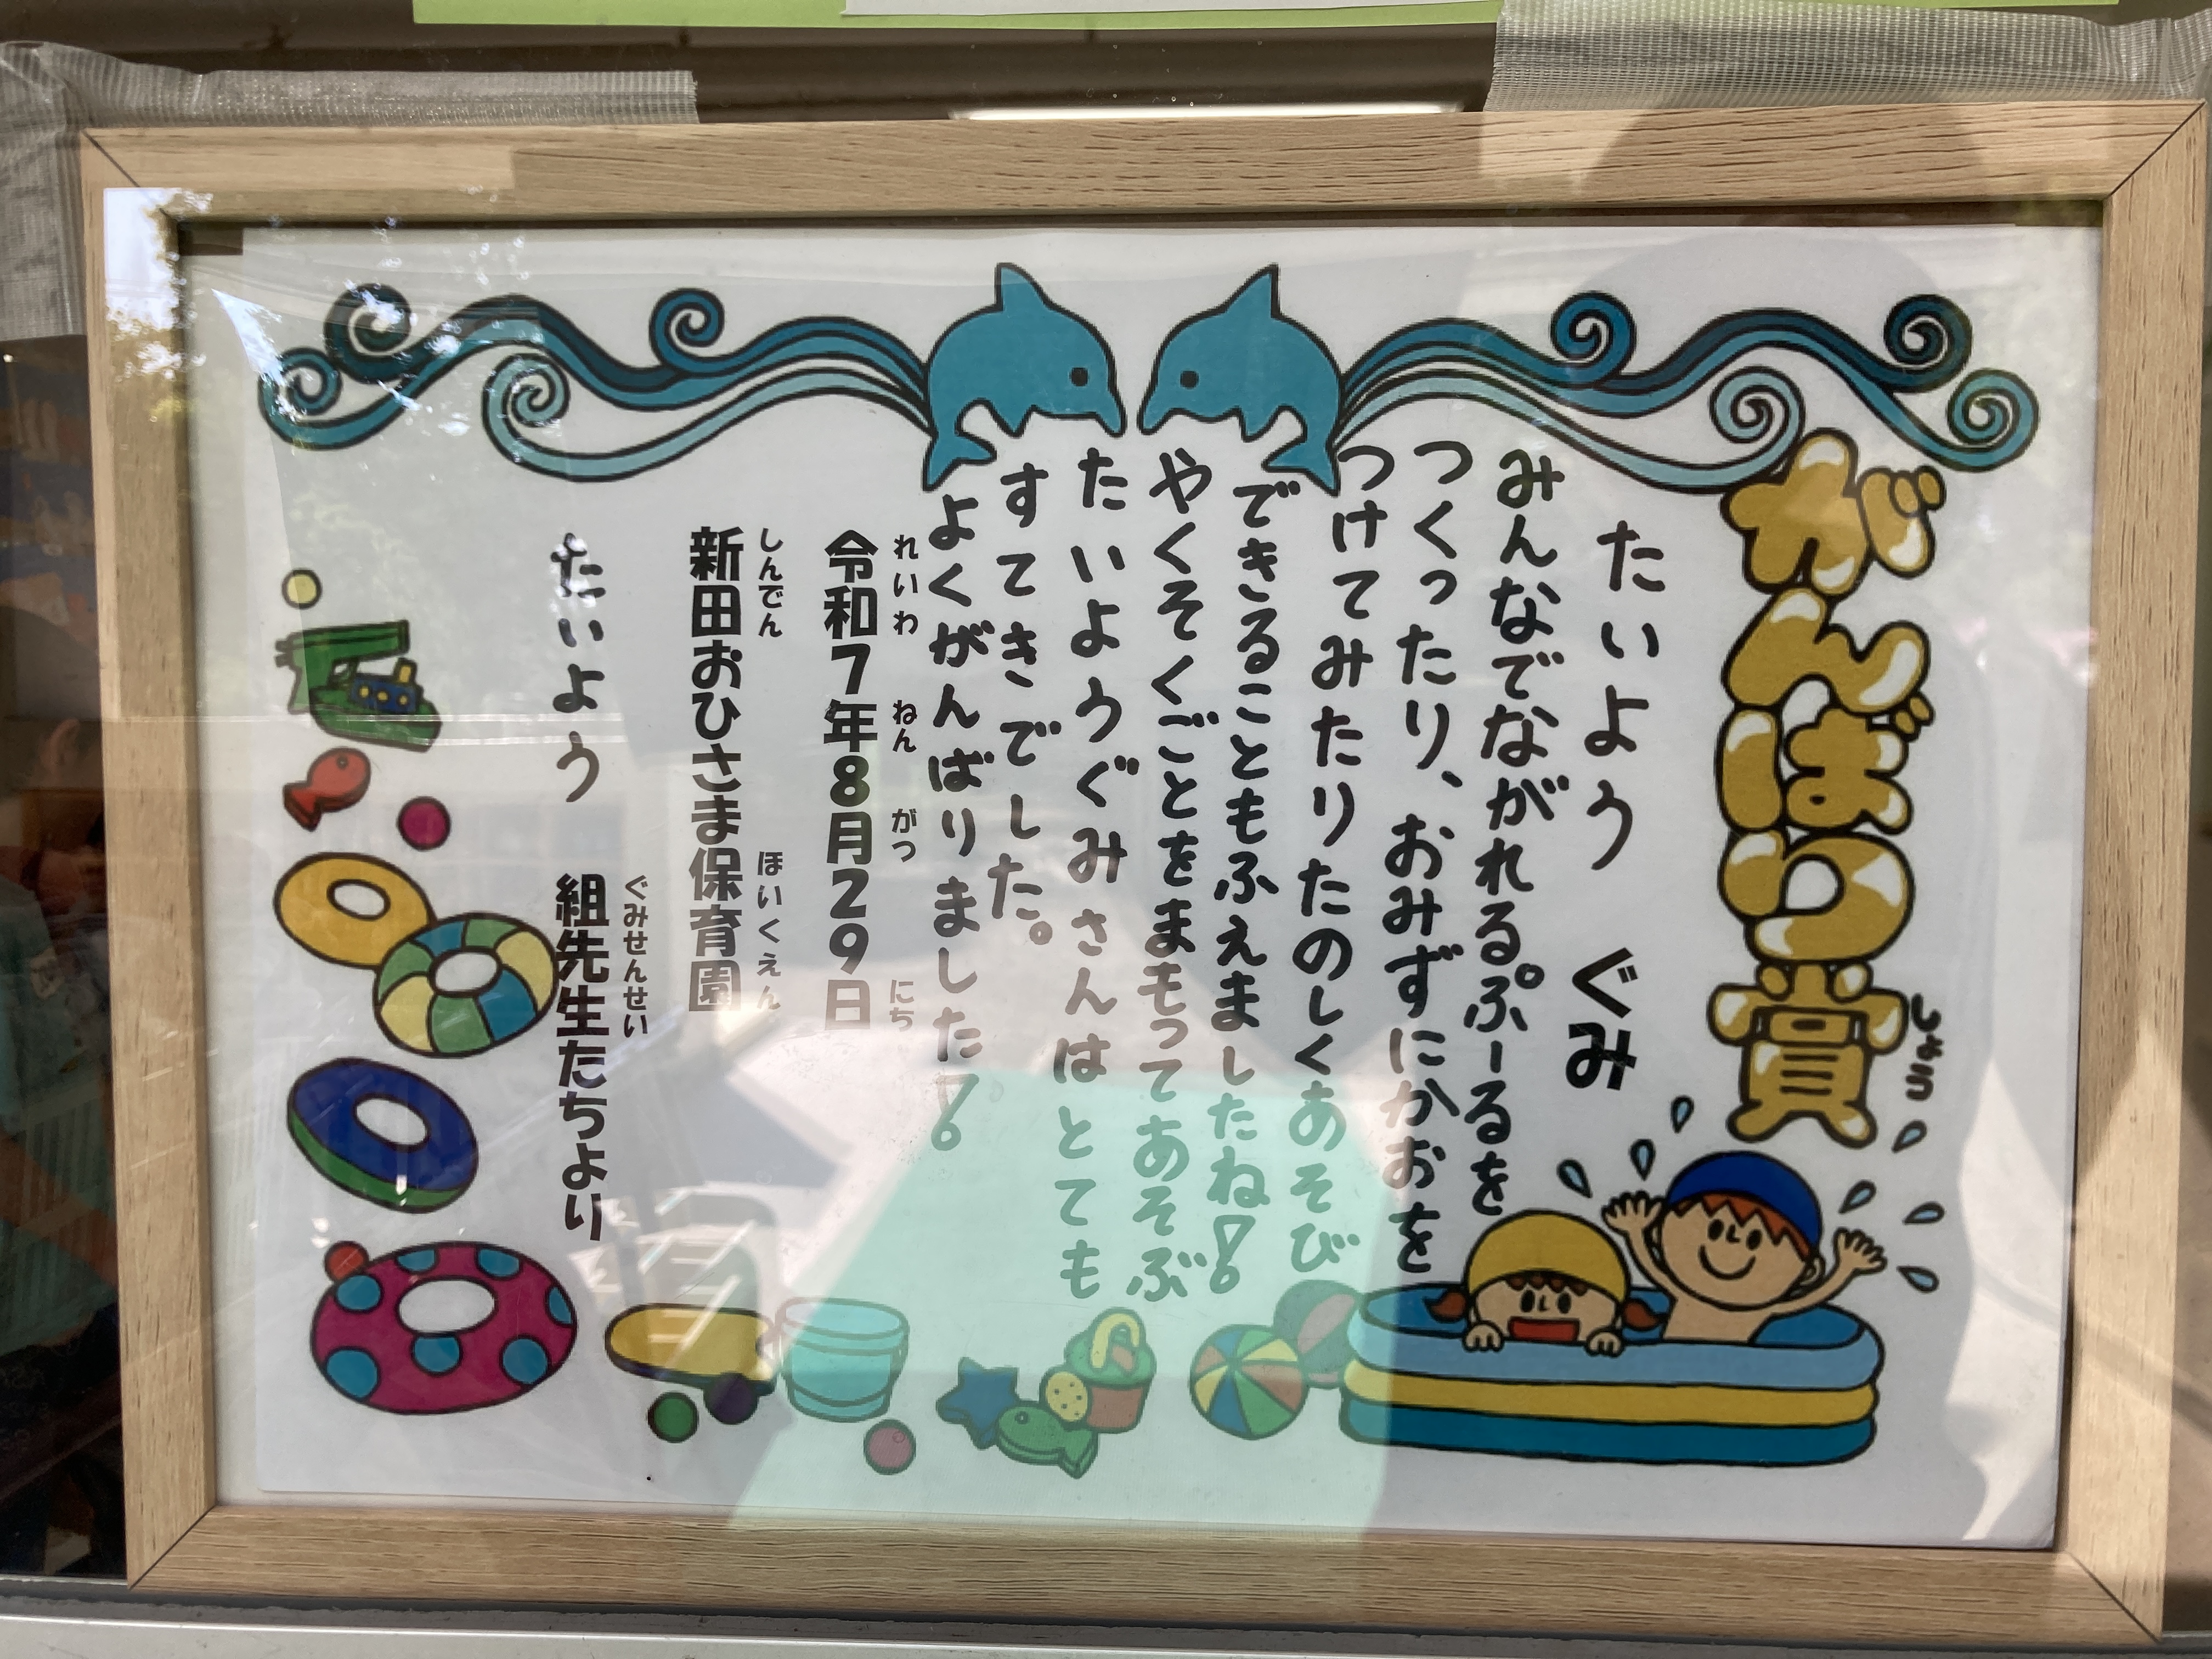 がんばり賞
しょう
たいよう ぐみ
みんなでながれるぷーるを
つくったり、おみずにかおを
つけてみたりたのしくあそび
できることもふえましたね!
やくそくごとをまもってあそぶ
たいようぐみさんはとても
すてきでした。
よくがんばりました!
れいわ ねん がつ にち
令和7年8月29日
しんでん ほいくえん
新田おひさま保育園
ぐみせんせい
たいよう 組先生たちより